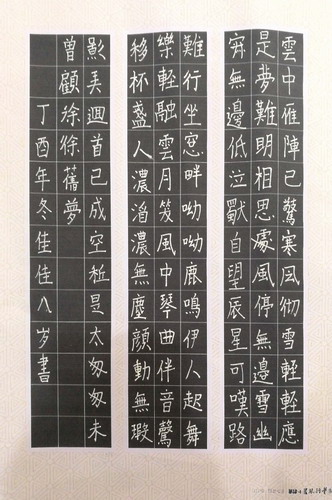 雲中雁陣已驚寒风彻雪輕輕應
是夢難明相思處風停無邊雪幽
無邊低泣獸自望辰星可嘆路
難行坐窓畔呦呦鹿鳴伊人起舞
樂輕融雲月笈風中琴曲伴音鶯
移杯盞人濃濃無塵顏動無瑕
影美迴首已成空是太匆匆未
曽顧徐徐舊夢
丁酉年冬佳佳八岁書